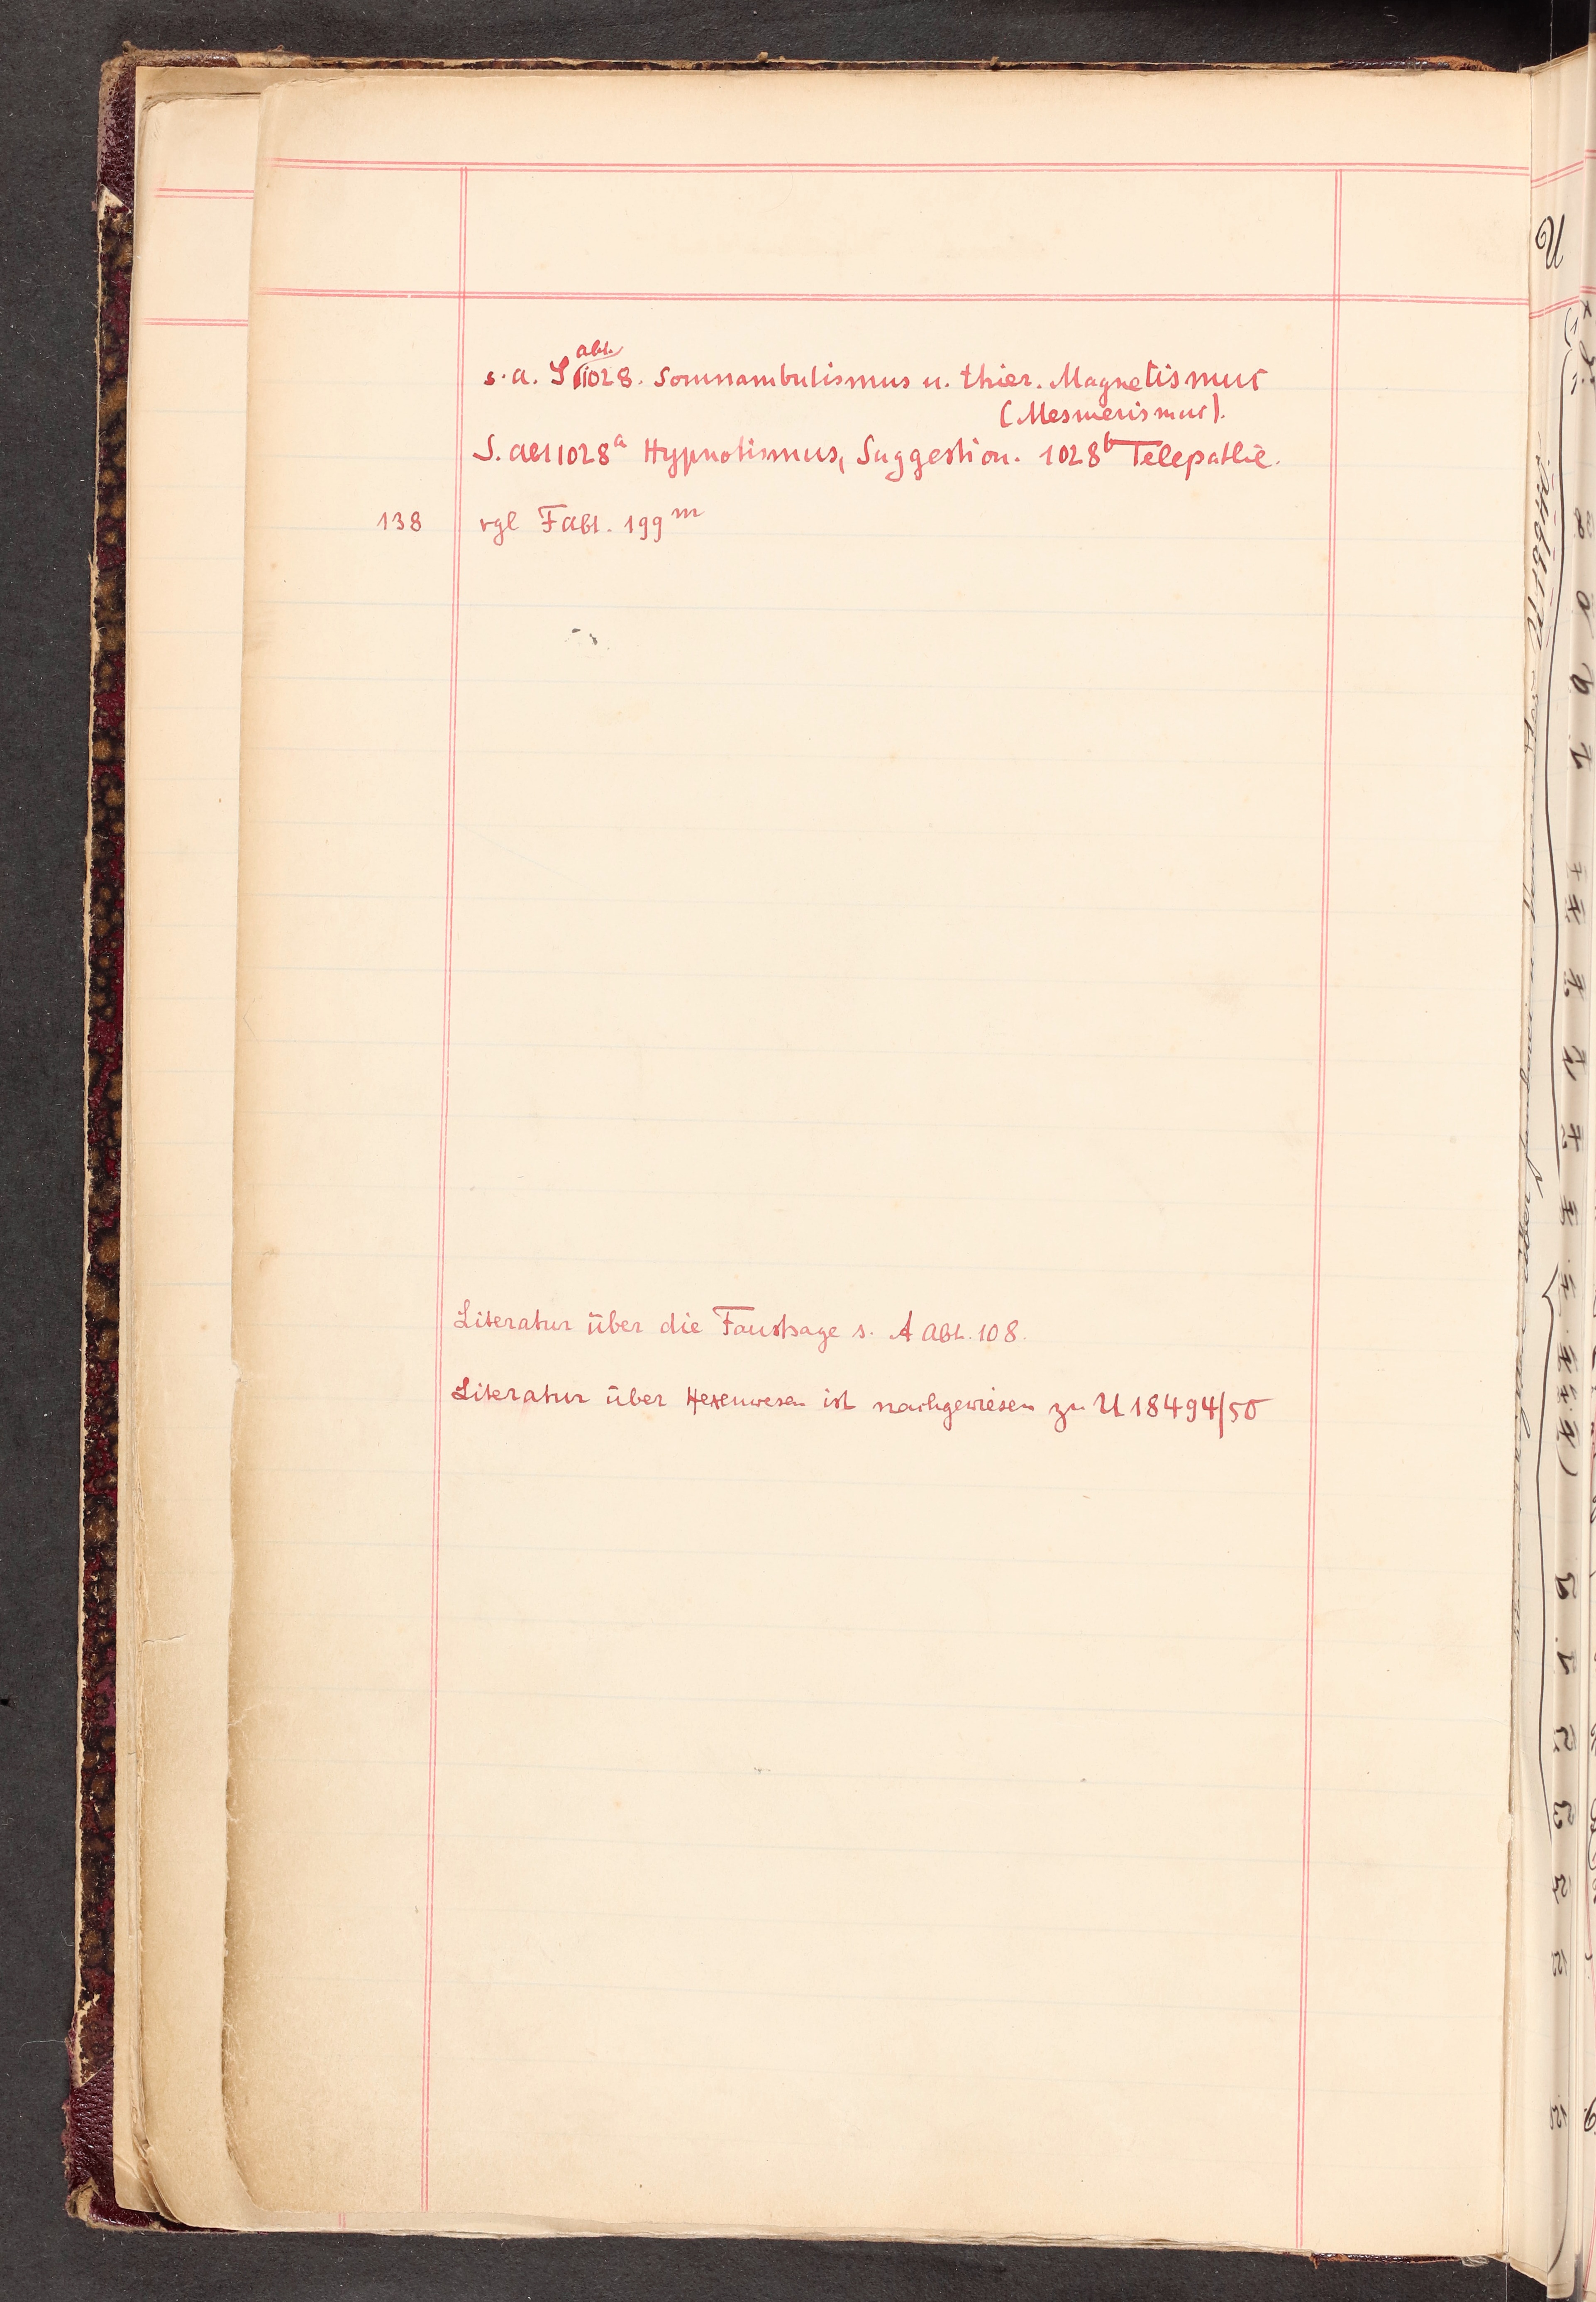 s. a. S abt. 1028. Somnambulismus u. thier. Magnetismus
(Mesmerismus).
S. abt 1028a Hypnotismus, Suggestion. 1028b Telepathie.
138 vgl Fabt. 199m
Literatur über die Faustsage s. A abt. 108.
Literatur über Hexenwesen ist nachgewiesen zu U 18494/50
U